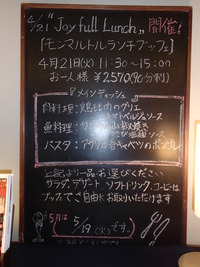 4/21 "Joy full Lunch" 開催!
[モンマルトルランチブッフェ]
4月21日(火) 11:30~15:00
お一人様 ¥2,570(90分制)
『メインディッシュ』
肉料理:鶏もも肉のグリエ
トマトベルジュソース
魚料理:
パスタ:アサリと春キャベツのボンゴレ
上記より一品お選びください
サラダ、デザート、ソフトドリンク、コーヒーは
ブッフェでご自由にお取りいただけます
5月は 5/19(火)です。